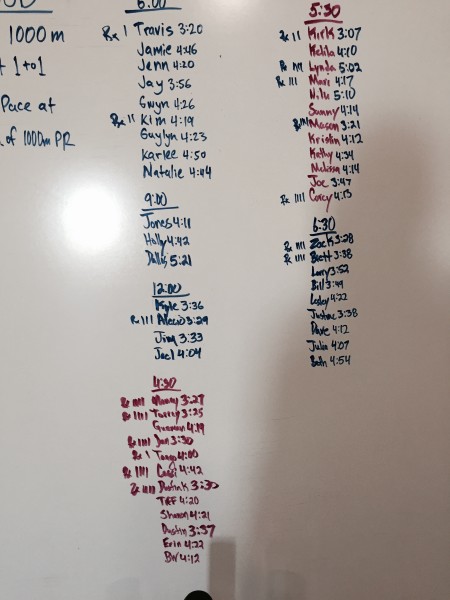 1000 m
1 to 1
Pace at
of 1000m PR
6:00
Rx I Travis 3:20
Jamie 4:46
Jenn 4:20
Jay 3:56
Gwyn 4:26
Rx II Kim 4:19
Guylyn 4:23
Karlee 4:50
Natalie 4:44
9:00
Jones 4:11
Holly 4:42
Dallas 5:21
12:00
Kyle 3:36
Rx IIII Alecio 3:29
Jim 3:33
Joel 4:04
4:30
Rx IIII Manny 3:27
Rx IIII Torrey 3:25
4:19
Rx IIII Jon 3:30
Rx I Tango 4:00
Rx IIII Cassi 4:42
Rx IIII Dustin K 3:30
Tiff 4:20
Shannon 4:21
Dustin 3:37
Erin 4:22
BW 4:12
5:30
Rx II Kirk 3:07
4:10
Rx Lynda 5:02
Rx III Marc 4:17
5:10
Sammy 4:14
Mason 3:21
Kristin 4:12
Kathy 4:34
Melissa 4:14
Joe 3:47
Rx IIII Corey 4:13
6:30
Rx IIII Zack 3:28
Rx IIII Brett 3:38
Larry 3:52
Bill 3:49
Lesley 4:22
Justine 3:38
Dave 4:12
Julia 4:07
Beth 4:54